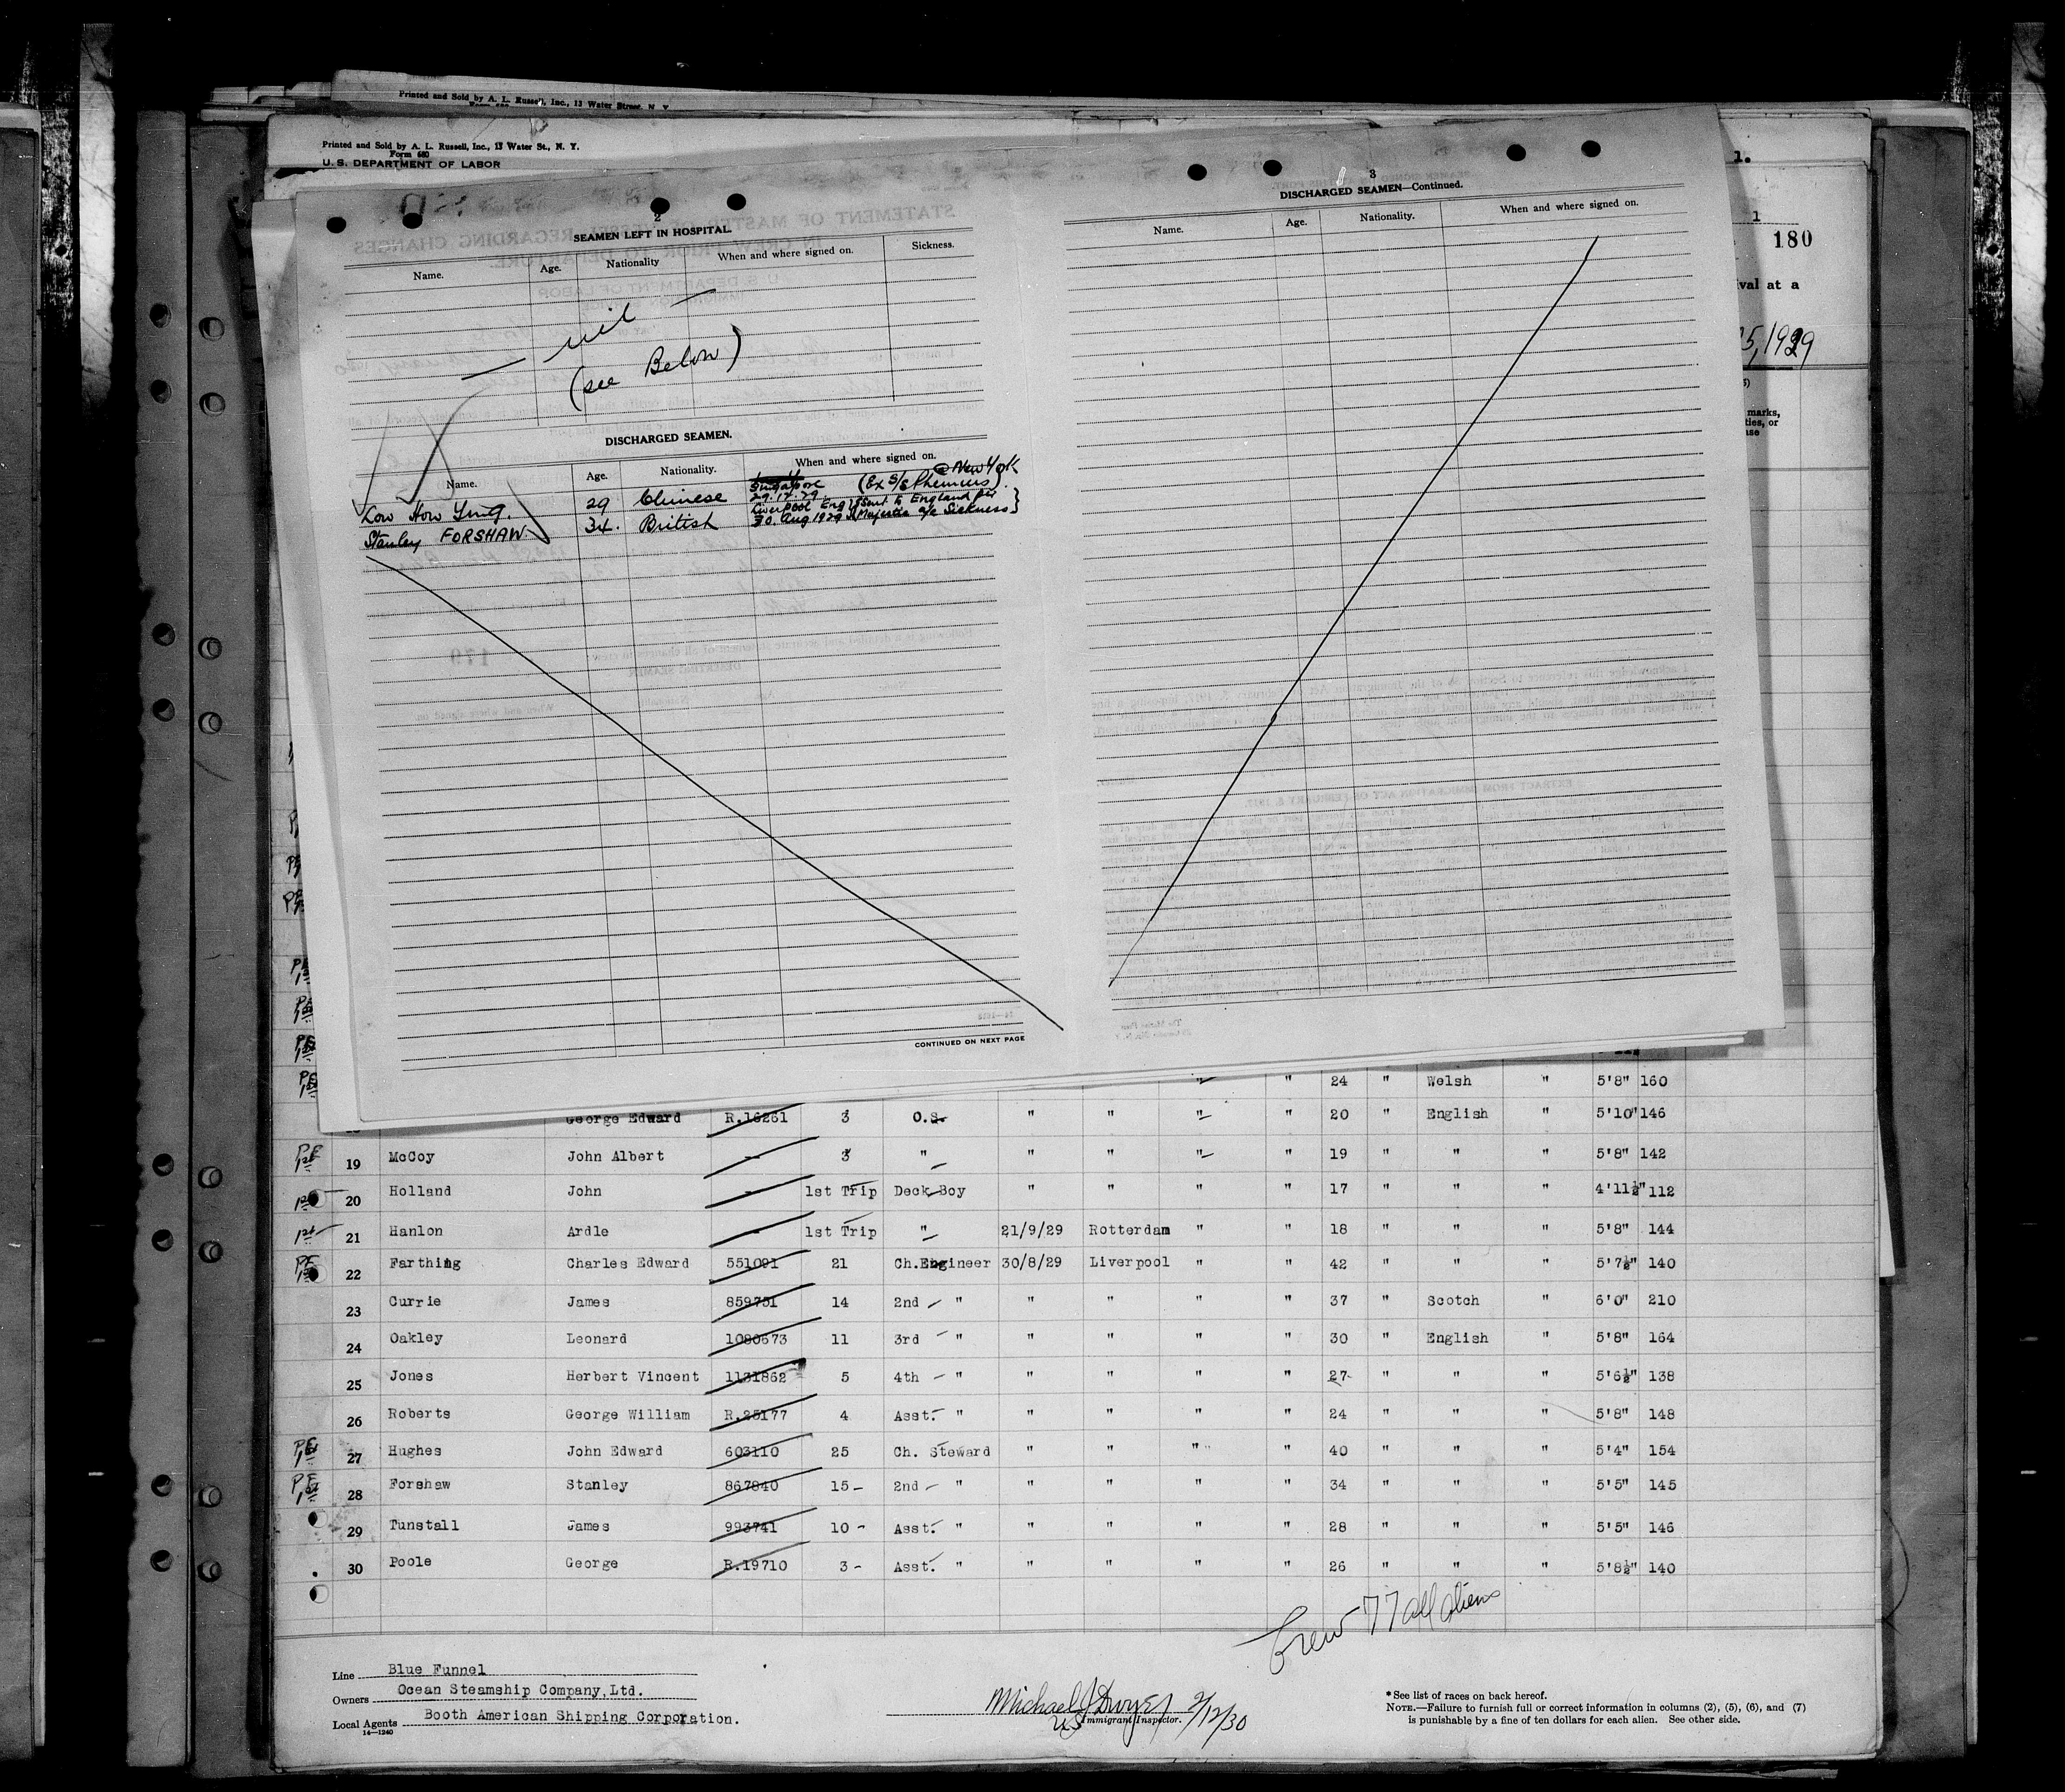 Printed and Sold by A. L. Russell, Inc., 13 Water Street, N. Y.
Printed and Sold by A. L. Russell, Inc., 13 Water St., N. Y.
Form 680
U. S. DEPARTMENT OF LABOR
1.
1
180
ival at a
5, 1929
marks,
ties, or
2
SEAMEN LEFT IN HOSPITAL.
Name. Age. Nationality When and where signed on. Sickness.
— nil —
(see Below)
DISCHARGED SEAMEN.
Name. Age. Nationality. When and where signed on.
Low How Ying. 29 Chinese Singapore 29.12.29 (Ex S/S Phemius) @ New York
Stanley FORSHAW 34. British Liverpool Eng 30. Aug 1929 (Sent to England per Majestic a/c Sickness)
CONTINUED ON NEXT PAGE
3
DISCHARGED SEAMEN—Continued.
Name. Age. Nationality. When and where signed on.
" " 24 " Welsh " 5'8" 160
George Edward R.16261 3 O.S. " " " " 20 " English " 5'10" 146
19 McCoy John Albert — 3 " " " " " 19 " " " 5'8" 142
20 Holland John — 1st Trip Deck Boy " " " " 17 " " " 4'11½" 112
21 Hanlon Ardle — 1st Trip " 21/9/29 Rotterdam " " 18 " " " 5'8" 144
22 Farthing Charles Edward 551091 21 Ch.Engineer 30/8/29 Liverpool " " 42 " " " 5'7½" 140
23 Currie James 859751 14 2nd " " " " " 37 " Scotch " 6'0" 210
24 Oakley Leonard 1080673 11 3rd " " " " " 30 " English " 5'8" 164
25 Jones Herbert Vincent 1131862 5 4th " " " " " 27 " " " 5'6½" 138
26 Roberts George William R.25177 4 Asst. " " " " " 24 " " " 5'8" 148
27 Hughes John Edward 603110 25 Ch. Steward " " " " 40 " " " 5'4" 154
28 Forshaw Stanley 867840 15 2nd " " " " " 34 " " " 5'5" 145
29 Tunstall James 993741 10 Asst. " " " " " 28 " " " 5'5" 146
30 Poole George R.19710 3 Asst. " " " " " 26 " " " 5'8½" 140
Crew 77 all aliens
Line Blue Funnel
Owners Ocean Steamship Company,Ltd.
Local Agents Booth American Shipping Corporation.
14—1240
Michael J Dwyer 2/12/30
US Immigrant Inspector.
* See list of races on back hereof.
NOTE.—Failure to furnish full or correct information in columns (2), (5), (6), and (7)
is punishable by a fine of ten dollars for each alien. See other side.